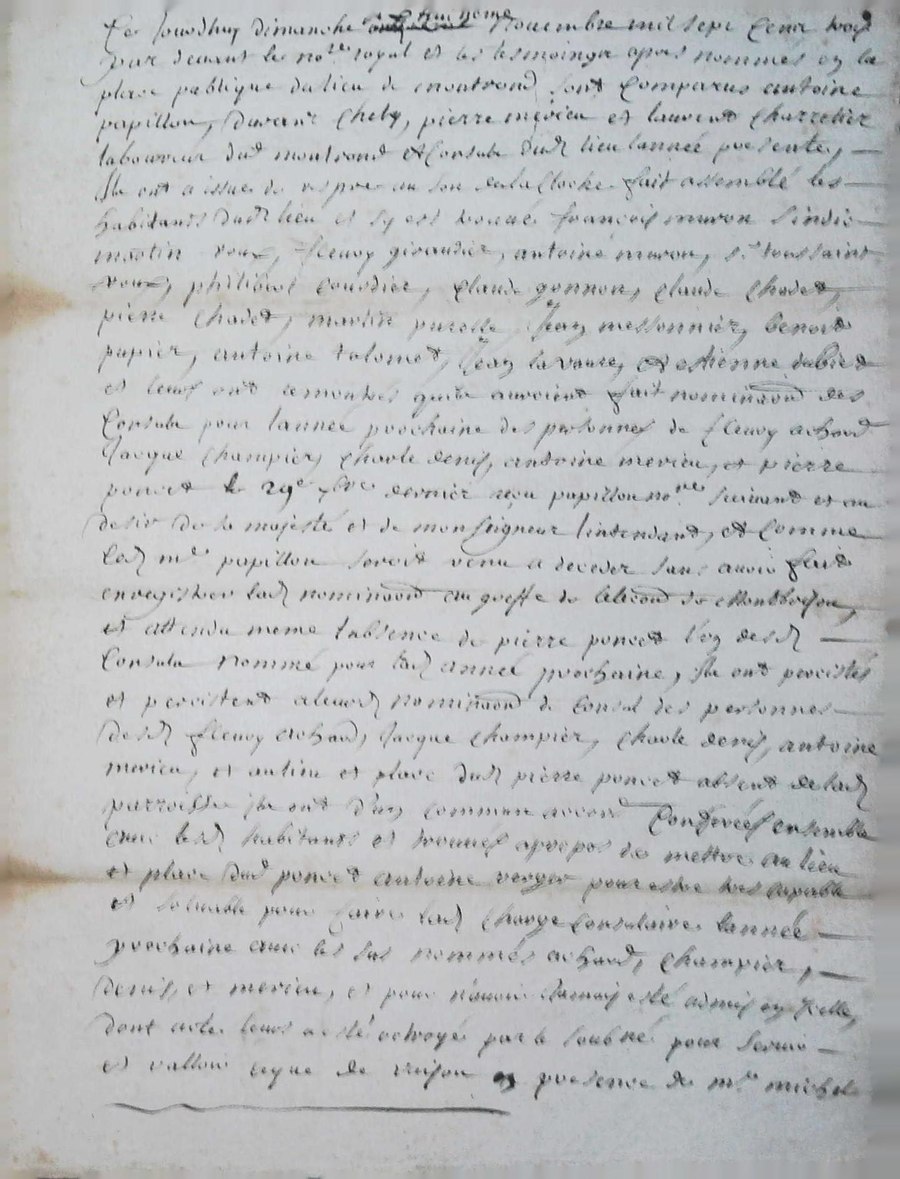 Ce jourdhuy dimanche Novembre mil sept cent trois
par devant le no.re royal et les tesmoings apres nommes en la
place publique du lieu de montrond sont comparus antoine
papillon, durant Chely, pierre merieu et laurent Charretier
laboureur dud montrond et Consuls dud lieu lannée presente,
Ils ont a issue de vespre au son de la Clocke fait assemblé les
habitants dud lieu et sy est trouué francois muron sindic
martin roux, fleury giraudier, antoine muron, s.r toussaint
roux, philibert cousdier, Claude gonnon, Claude Chadet,
pierre Chadet, martin purolle Jean messonnier, benoit
papier, antoine talomet, Jean lavaure, et estienne dubiet
et leurs ont remontres quils auroient fait nominaon des
Consuls pour lannée prochaine des personnes de fleury achard
Jacque Champier, Charle denis, antoine merieu, et pierre
poncet le 29e dernier reçu papillon no.re suivant et au
desir de sa majesté et de monseigneur lintendant, et comme
led m.e papillon seroit venu a deceder sans avoir fait
enregistrer lad nominaon au greffe de lelecaon de Montbrison,
et attendu meme labsence de pierre poncet lun desd
Consuls nommé pour lad année prochaine, Ils ont percistés
et percistent a leurd nominaon de Consul des personnes
desd fleury achard, Jacque Champier, Charle denis, antoine
merieu, et au lieu et place dud pierre poncet absent de lad
parroisse ils ont d'un commun accord Conferés ensemble
avec lesd habitants et trouués apropos de mettre au lieu
et place dud poncet antoine verger pour estre tres capable
et soluable pour faire lad charge Consulaire lannée
prochaine avec les sus nommés achard, Champier,
denis, et merieu, et pour n'avoir Jamais esté admis en Icelle,
dont acte leurs a esté octroyé par le soubné pour servir
et valloir ce que de raison en presence de m.re michel